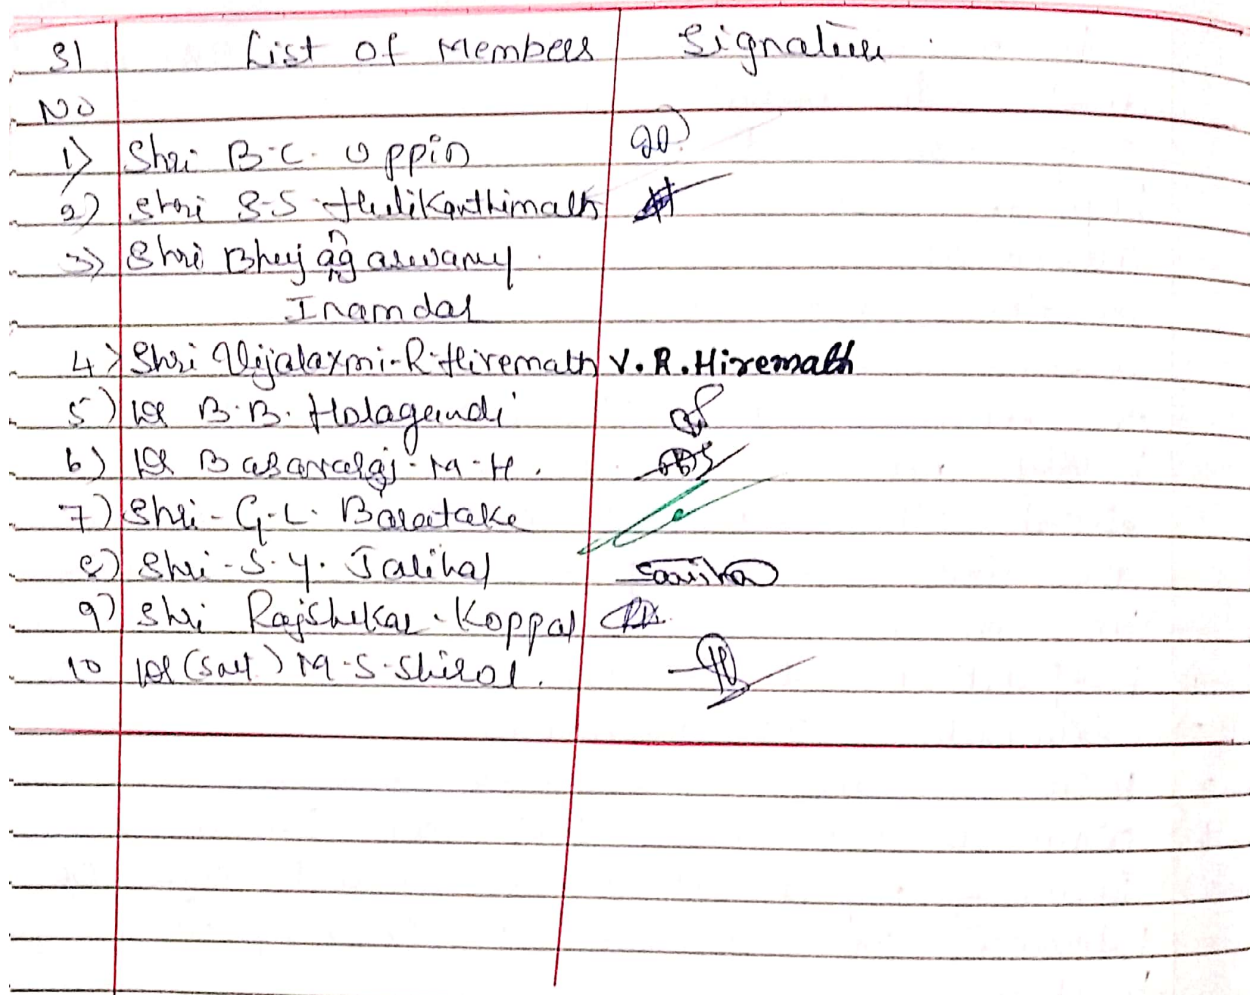 Sl List of Members Signature
No
1) Shri B.C. Uppin
2) Shri S.S. Hulikanthimath
3) Shri Bhujagaswamy
Inamdar
4) Shri Vijalaxmi-R-Hiremath V.R.Hiremath
5) Dr B.B. Holagundi
6) Dr Basavaraj-M-H.
7) Shri-G.L. Baratake
8) Shri-S.Y. Jalihal
9) Shri Rajshekar-Koppal
10 Dr (Smt) M-S-Shirol.